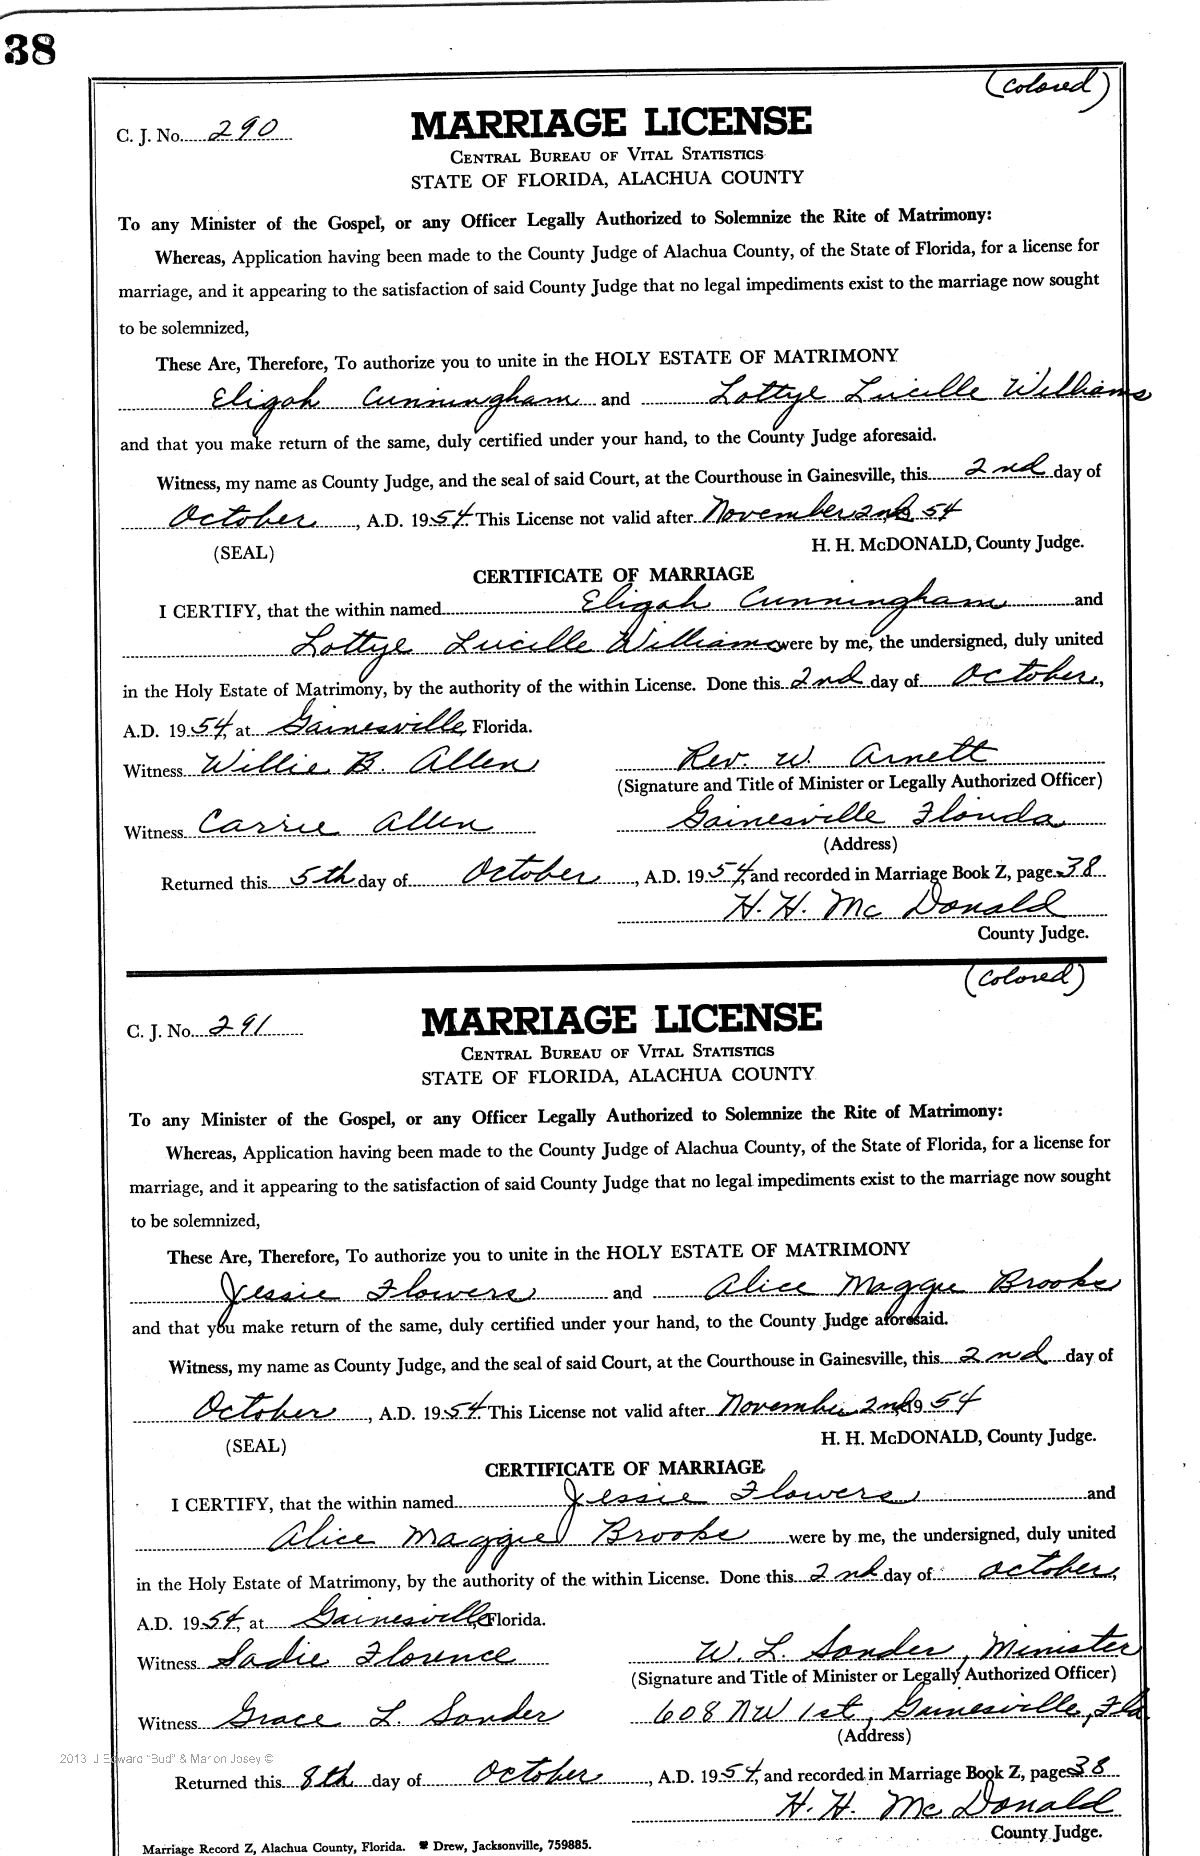 38
(Colored)
C. J. No. 290
MARRIAGE LICENSE
CENTRAL BUREAU OF VITAL STATISTICS
STATE OF FLORIDA, ALACHUA COUNTY
To any Minister of the Gospel, or any Officer Legally Authorized to Solemnize the Rite of Matrimony:
Whereas, Application having been made to the County Judge of Alachua County, of the State of Florida, for a license for
marriage, and it appearing to the satisfaction of said County Judge that no legal impediments exist to the marriage now sought
to be solemnized,
These Are, Therefore, To authorize you to unite in the HOLY ESTATE OF MATRIMONY
Eligah Cunningham and Lottye Lucille Williams
and that you make return of the same, duly certified under your hand, to the County Judge aforesaid.
Witness, my name as County Judge, and the seal of said Court, at the Courthouse in Gainesville, this 2nd day of
October, A.D. 1954. This License not valid after November 2nd, 19 54
(SEAL) H. H. McDONALD, County Judge.
CERTIFICATE OF MARRIAGE
I CERTIFY, that the within named Eligah Cunningham and
Lottye Lucille Williams were by me, the undersigned, duly united
in the Holy Estate of Matrimony, by the authority of the within License. Done this 2nd day of October,
A.D. 1954, at Gainesville, Florida.
Witness Willie B. Allen Rev. W. Arnett
(Signature and Title of Minister or Legally Authorized Officer)
Witness Carrie Allen Gainesville Florida
(Address)
Returned this 5th day of October, A.D. 1954, and recorded in Marriage Book Z, page 38
H. H. Mc Donald
County Judge.
(Colored)
C. J. No. 291
MARRIAGE LICENSE
CENTRAL BUREAU OF VITAL STATISTICS
STATE OF FLORIDA, ALACHUA COUNTY
To any Minister of the Gospel, or any Officer Legally Authorized to Solemnize the Rite of Matrimony:
Whereas, Application having been made to the County Judge of Alachua County, of the State of Florida, for a license for
marriage, and it appearing to the satisfaction of said County Judge that no legal impediments exist to the marriage now sought
to be solemnized,
These Are, Therefore, To authorize you to unite in the HOLY ESTATE OF MATRIMONY
Jessie Flowers and Alice Maggie Brooks
and that you make return of the same, duly certified under your hand, to the County Judge aforesaid.
Witness, my name as County Judge, and the seal of said Court, at the Courthouse in Gainesville, this 2nd day of
October, A.D. 1954. This License not valid after November 2nd, 19 54
(SEAL) H. H. McDONALD, County Judge.
CERTIFICATE OF MARRIAGE
I CERTIFY, that the within named Jessie Flowers and
Alice Maggie Brooks were by me, the undersigned, duly united
in the Holy Estate of Matrimony, by the authority of the within License. Done this 2nd day of October,
A.D. 1954, at Gainesville, Florida.
Witness Sadie Florence W. L. Sonder, Minister
(Signature and Title of Minister or Legally Authorized Officer)
Witness Grace L. Sonder 608 NW 1st, Gainesville, Fla
(Address)
2013 J Edward "Bud" & Marion Josey ©
Returned this 8th day of October, A.D. 1954, and recorded in Marriage Book Z, page 38
H. H. Mc Donald
County Judge.
Marriage Record Z, Alachua County, Florida. Drew, Jacksonville, 759885.